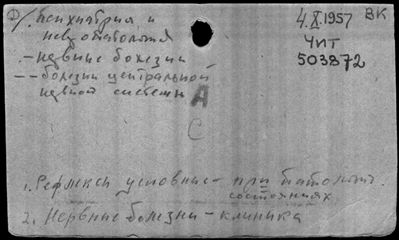 Ф/. Психиатрия и
невропатология
. – нервные болезни
–– болезни центральной
нервной системы
4.X.1957 ВК
ЧИТ
503872
А
С
1. Рефлексы условные – при патолог.
состояниях
2. Нервные болезни – клиника